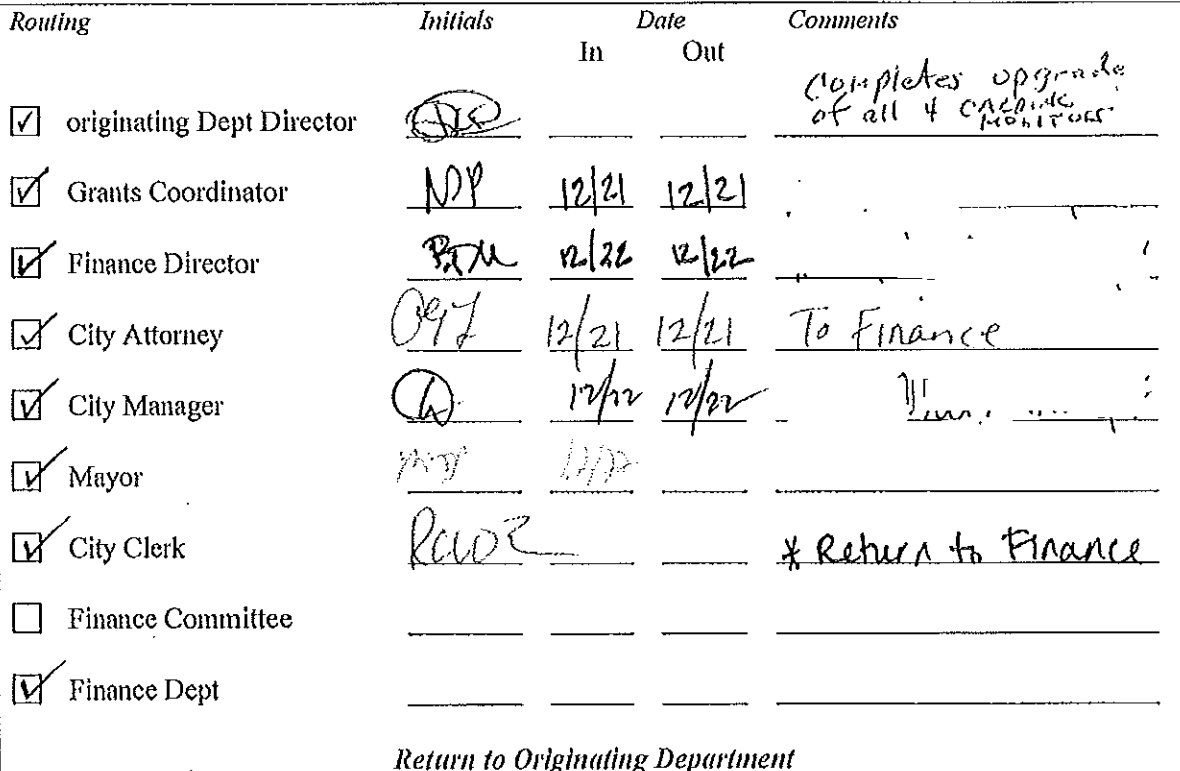 Routing Initials Date Comments
In Out
Completes upgrade
of all 4 cardiac
monitors
originating Dept Director
Grants Coordinator NP 12/21 12/21
Finance Director 12/22 12/22
City Attorney 12/21 12/21 To Finance
City Manager 12/22 12/22
Mayor
City Clerk * Return to Finance
Finance Committee
Finance Dept
Return to Originating Department